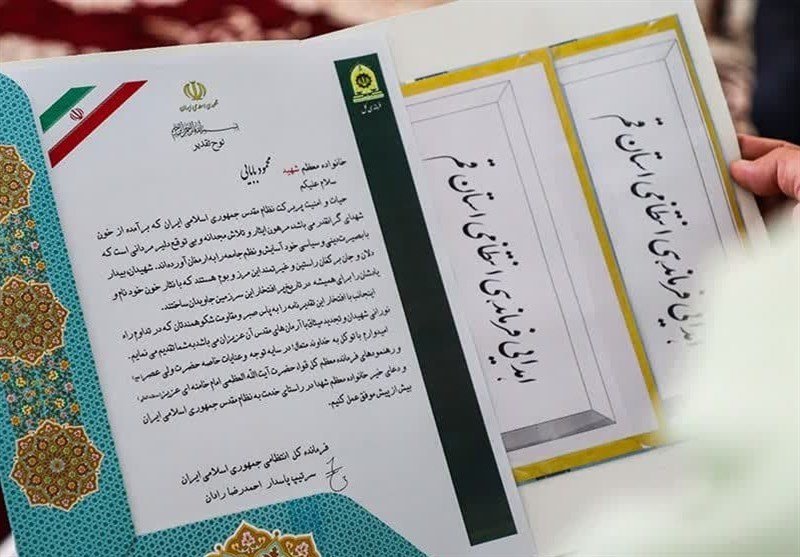 جمهوری اسلامی ایران
لوح تقدیر
فرماندهی کل
خانواده معظم شهید محمود بابالی
سلام علیکم
حیات و امنیت پربرکت نظام مقدس جمهوری اسلامی ایران که برآمده از خون
شهدای گرانقدر می باشد، مرهون ایثار و تلاش مجدانه و بی توقع دلیر مردانی است که
با بصیرت دینی و سیاسی خود آسایش و نظم جامعه را به ارمغان آورده‌اند. شهیدان، بیدار
دلان و جان بر کفان راستین و خردمند این مرز و بوم هستند که با نثار خون خود نام و
یادشان را برای همیشه در تاریخ پر افتخار این سرزمین جاویدان ساختند.
اینجانب با افتخار این تقدیرنامه را به پاس صبر و مقاومت شکوهمندتان که در تداوم راه
نورانی شهیدان و تجدید میثاق با آرمان‌های مقدس آن عزیزان می باشد به شما تقدیم می نمایم.
امیدوارم با توکل به خداوند متعال، در سایه توجه و عنایات خاصه حضرت ولی عصر
و رهنمودهای فرمانده معظم کل قوا، حضرت آیت الله العظمی امام خامنه ای عزیز
و دعای خیر خانواده معظم شهدا در راستای خدمت به نظام مقدس جمهوری اسلامی ایران
بیش از پیش موفق عمل کنیم.
فرمانده کل انتظامی جمهوری اسلامی ایران
سرتیپ پاسدار احمدرضا رادان
اهدائی فرماندهی انتظامی استان قم
اهدائی فرماندهی انتظامی استان قم